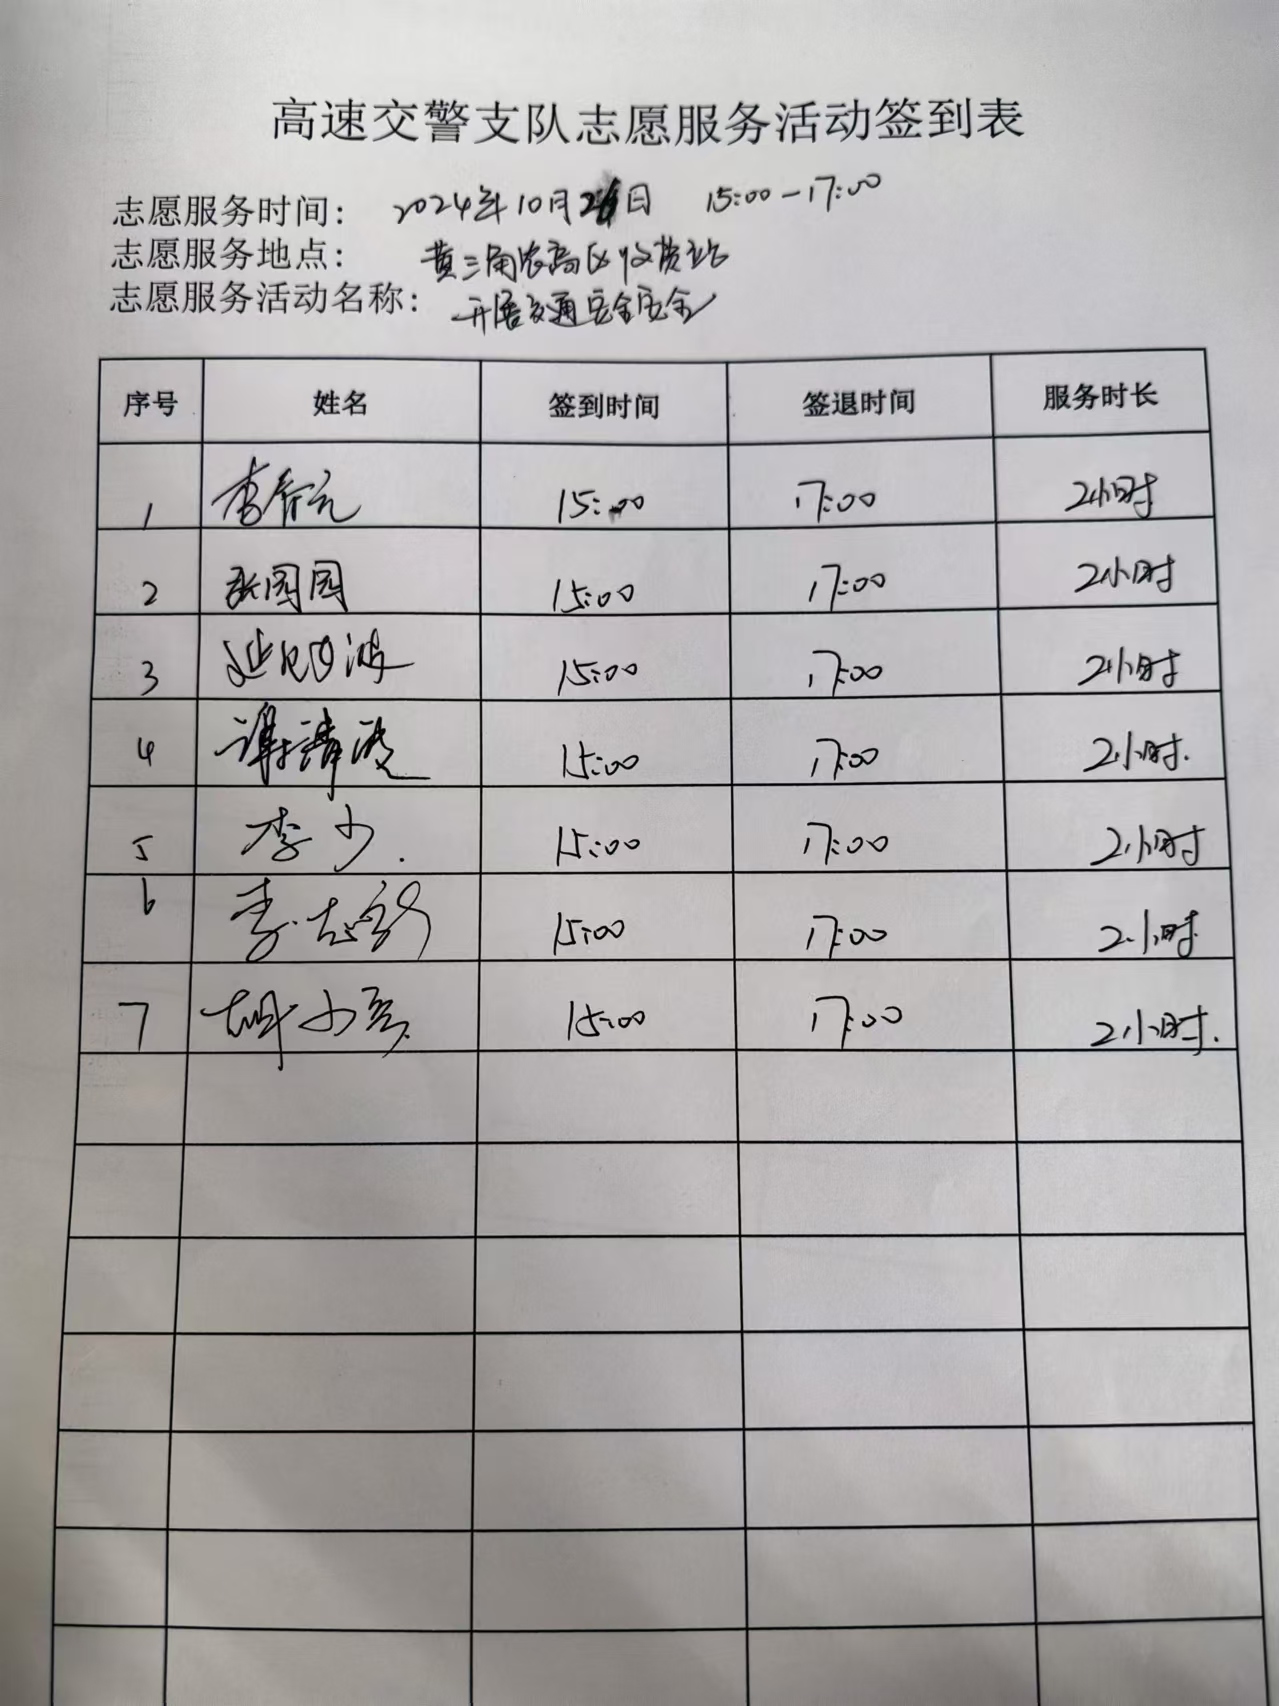 高速交警支队志愿服务活动签到表
志愿服务时间： 2024年10月2日 15:00-17:00
志愿服务地点： 黄三角农高区收费站
志愿服务活动名称： 开展交通安全安全
序号 姓名 签到时间 签退时间 服务时长
1 李 15:00 17:00 2小时
2 张园园 15:00 17:00 2小时
3 延 波 15:00 17:00 2小时
4 谢清波 15:00 17:00 2小时
5 李少. 15:00 17:00 2小时
6 李志 15:00 17:00 2小时.
7 胡小亮 15:00 17:00 2小时.